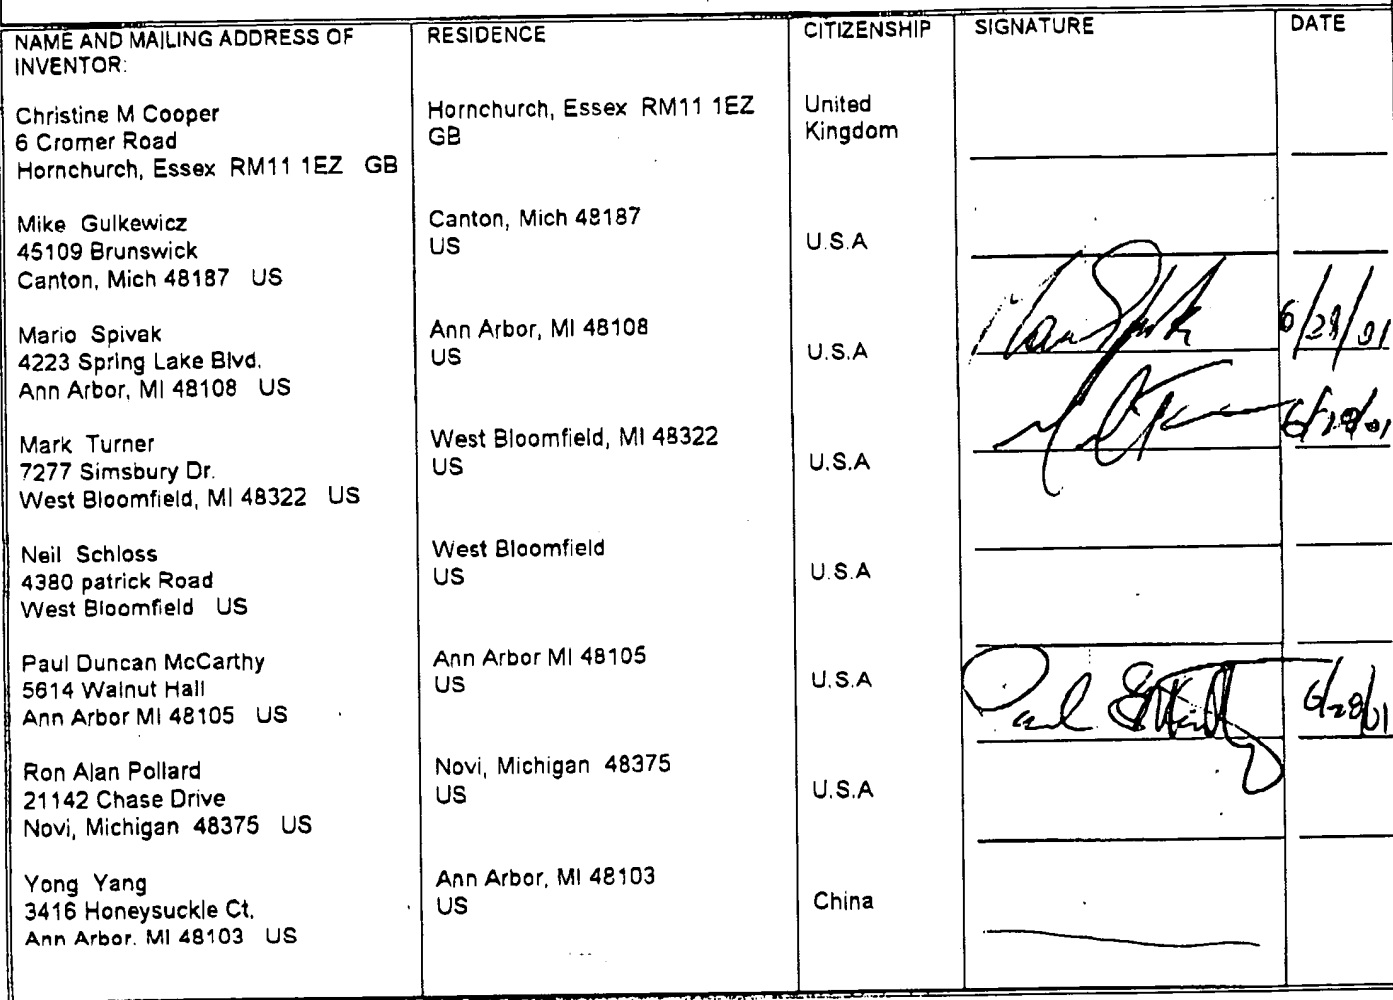 NAME AND MAILING ADDRESS OF
INVENTOR:
RESIDENCE
CITIZENSHIP
SIGNATURE
DATE
Christine M Cooper
6 Cromer Road
Hornchurch, Essex RM11 1EZ GB
Hornchurch, Essex RM11 1EZ
GB
United
Kingdom
Mike Gulkewicz
45109 Brunswick
Canton, Mich 48187 US
Canton, Mich 48187
US
U.S.A
Mario Spivak
4223 Spring Lake Blvd.
Ann Arbor, MI 48108 US
Ann Arbor, MI 48108
US
U.S.A
6/28/01
Mark Turner
7277 Simsbury Dr.
West Bloomfield, MI 48322 US
West Bloomfield, MI 48322
US
U.S.A
6/28/01
Neil Schloss
4380 patrick Road
West Bloomfield US
West Bloomfield
US
U.S.A
Paul Duncan McCarthy
5614 Walnut Hall
Ann Arbor MI 48105 US
Ann Arbor MI 48105
US
U.S.A
Paul
6/28/01
Ron Alan Pollard
21142 Chase Drive
Novi, Michigan 48375 US
Novi, Michigan 48375
US
U.S.A
Yong Yang
3416 Honeysuckle Ct.
Ann Arbor. MI 48103 US
Ann Arbor, MI 48103
US
China